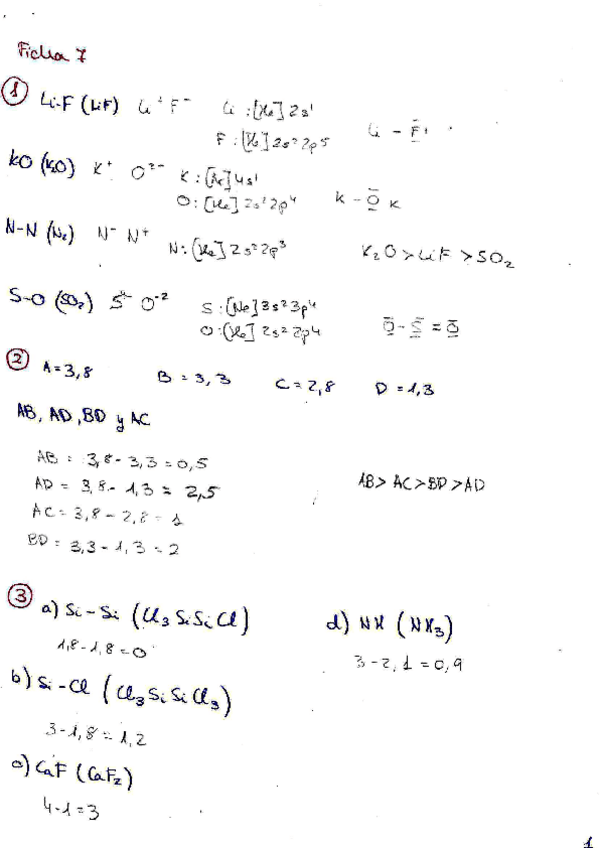 Ficha 7
① Li-F (LiF) Li⁺ F⁻ Li : [He] 2s¹
F : [He] 2s² 2p⁵ Li - F̲̅ı
KO (K₂O) K⁺ O²⁻ K : [Ar] 4s¹
O : [He] 2s¹ 2p⁴ K - O̲̅ K
N-N (N₂) N⁻ N⁺ N : [He] 2s² 2p³ K₂O > LiF > SO₂
S-O (SO₂) O⁻² S : [Ne] 3s² 3p⁴
O : [He] 2s² 2p⁴ O̲̅ - S̲̅ = O̲̅
② A = 3,8 B = 3,3 C = 2,8 D = 1,3
AB, AD, BD y AC
AB = 3,8 - 3,3 = 0,5
AD = 3,8 - 1,3 = 2,5 AB > AC > BD > AD
AC = 3,8 - 2,8 = 1
BD = 3,3 - 1,3 = 2
③ a) Si-Si (Cl₃ Si Si Cl) d) NH (NH₃)
1,8 - 1,8 = 0 3 - 2,1 = 0,9
b) Si-Cl (Cl₃ Si Si Cl₃)
3 - 1,8 = 1,2
c) CaF (CaF₂)
4 - 1 = 3
1